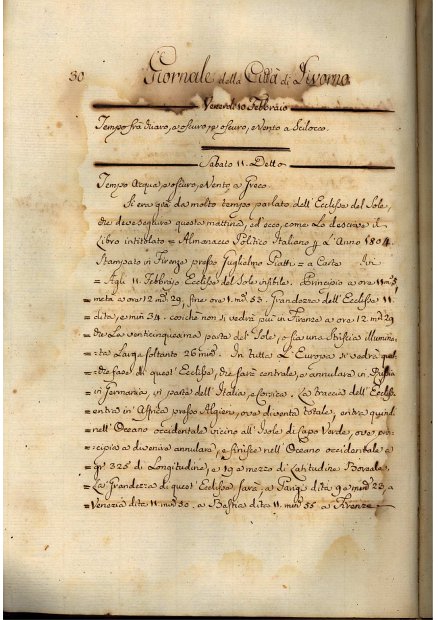 30 Giornale della Città di Livorno
Venerdì 10 Febbraio
Tempo frà duaro, e oscuro, e Vento a Scilocco.
Sabato 11. Detto
Tempo Acqua, e oscuro, e Vento a Greco.
Si era già da molto tempo parlato dell'Ecclisse del Sole,
che deve seguire questa mattina, ed ecco, come Lo descrive il
Libro intitolato = Almanacco Politico Italiano p. L'Anno 1804.
Stampato in Firenze presso Guglielmo Piatti = a Carta
= Agli 11. Febbraio Ecclisse del Sole visibile. Principio a ore 11 m. 5,
meta a ore 12 m. 29, fine ore 1. m. 53. Grandezza dell'Ecclisse 11
= dita, e min. 34. cosichè non si vedrà quì in Firenze a ore 12. m. 29
= che La venticinquesima parte del Sole, o sia una Striscia illumina-
= ta Larga soltanto 26 min. In tutta L'Europa si vedrà qual-
= che fase di quest'Ecclisse, che sarà centrale, e annulare in
= in Germania, in parte dell'Italia, e Corsica. La traccia dell'Ecclisse
= entra in Affrica presso Algieri, ove diventa totale, entra quindi
= nell'Oceano occidentale vicino all'Isole di Capo Verde, ove prin-
= cipia a divenire annulare, e finisce nell'Oceano occidentale a
= gr. 325 di Longitudine, e 19 e mezzo di Latitudine Boreale.
= La Grandezza di quest'Ecclisse sarà a Parigi dita 9 e min. 23, a
= Venezia dita 11. min. 30. a Bastia dita 11. min. 55 a Firenze